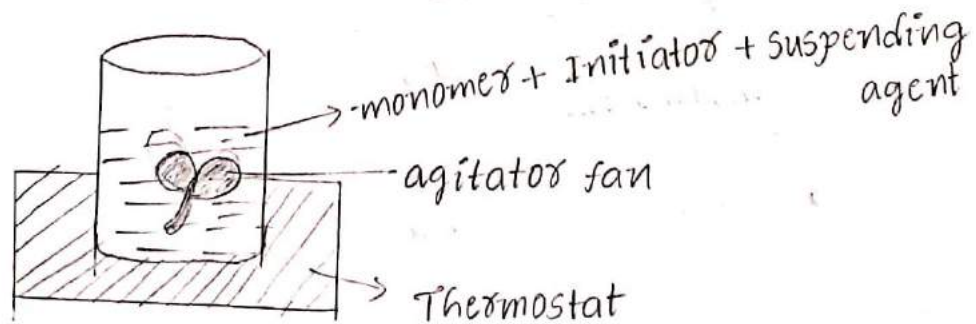 monomer + Initiator + suspending
agent
agitator fan
Thermostat